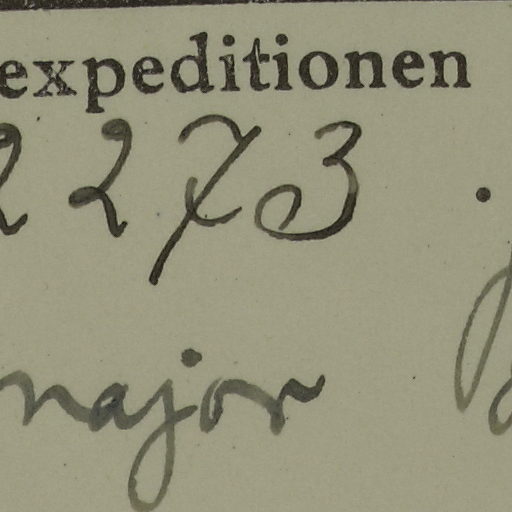 expeditionen
2273.
major